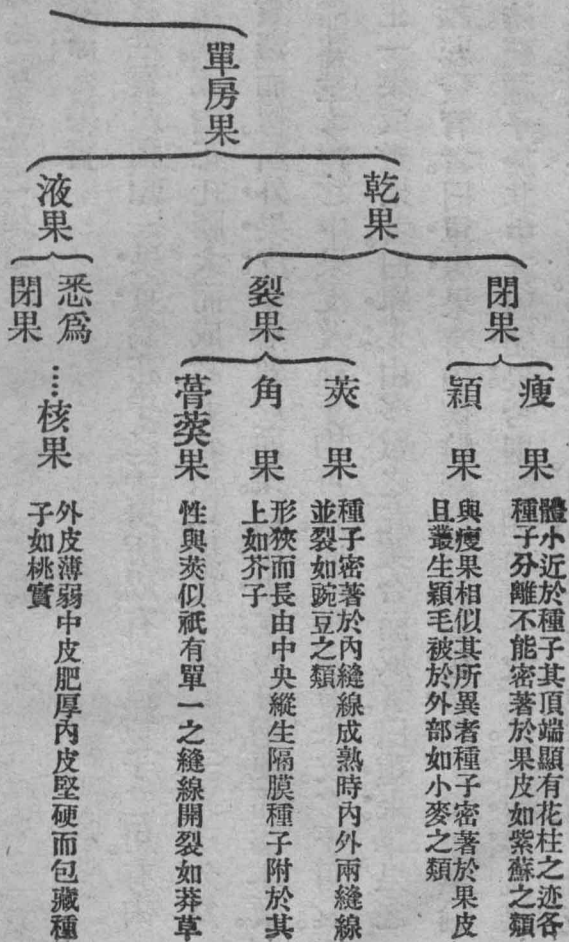 單房果
乾果
閉果
瘦果
體小近於種子其頂端顯有花柱之迹各
種子分離不能密著於果皮如紫蘇之類
穎果
與瘦果相似其所異者種子密著於果皮
且叢生穎毛被於外部如小麥之類
裂果
莢果
種子密著於內縫線成熟時內外兩縫線
並裂如豌豆之類
角果
形狹而長由中央縱生隔膜種子附於其
上如芥子
蓇葖果
性與莢似祇有單一之縫線開裂如莽草
液果
悉爲
閉果
……核果
外皮薄弱中皮肥厚內皮堅硬而包藏種
子如桃實